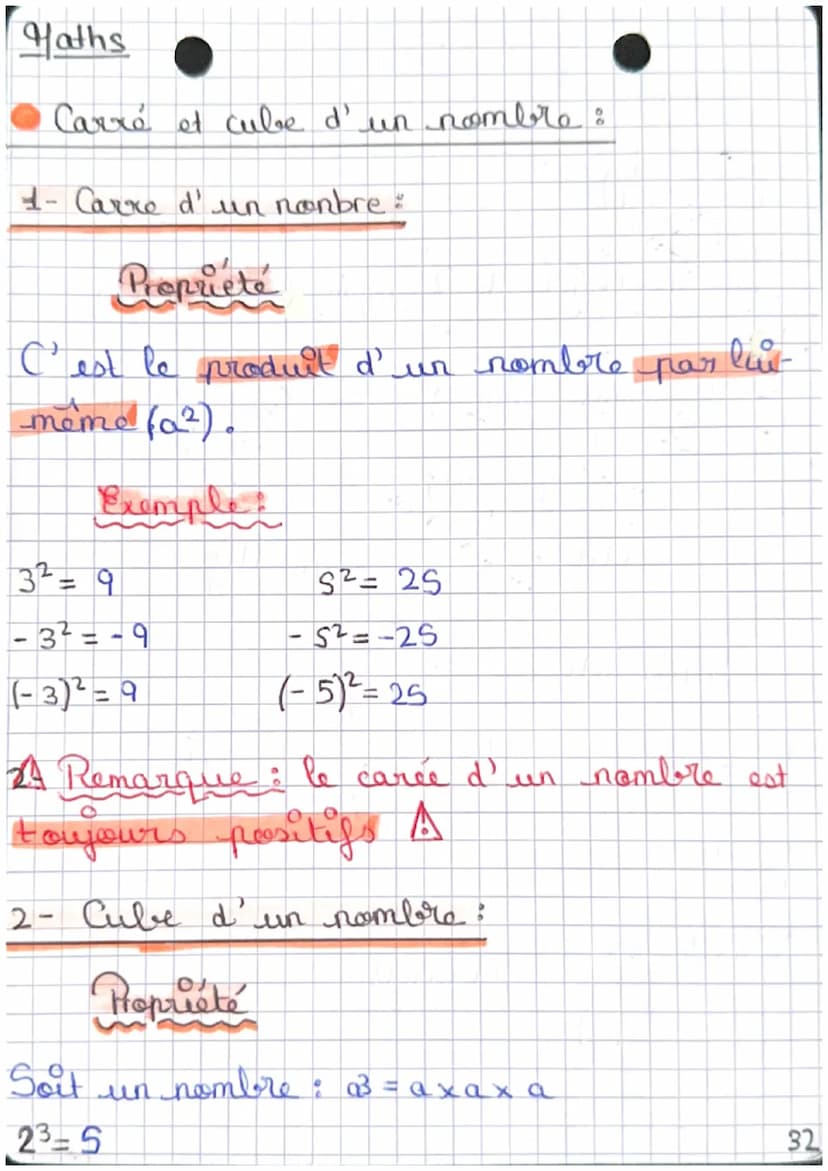 Maths
Carré et cube d'un nombre :
1- Carre d'un nonbre :
Propriété
C'est le produit d'un nombre par lui-
même (a²).
Exemple :
3² = 9 5² = 25
- 3² = - 9 - 5² = -25
(- 3)² = 9 (- 5)² = 25
⚠ Remarque : le carée d'un nombre est
toujours positifs ⚠
2- Cube d'un nombre :
Propriété
Soit un nombre : a³ = a x a x a
2³ = 5
32